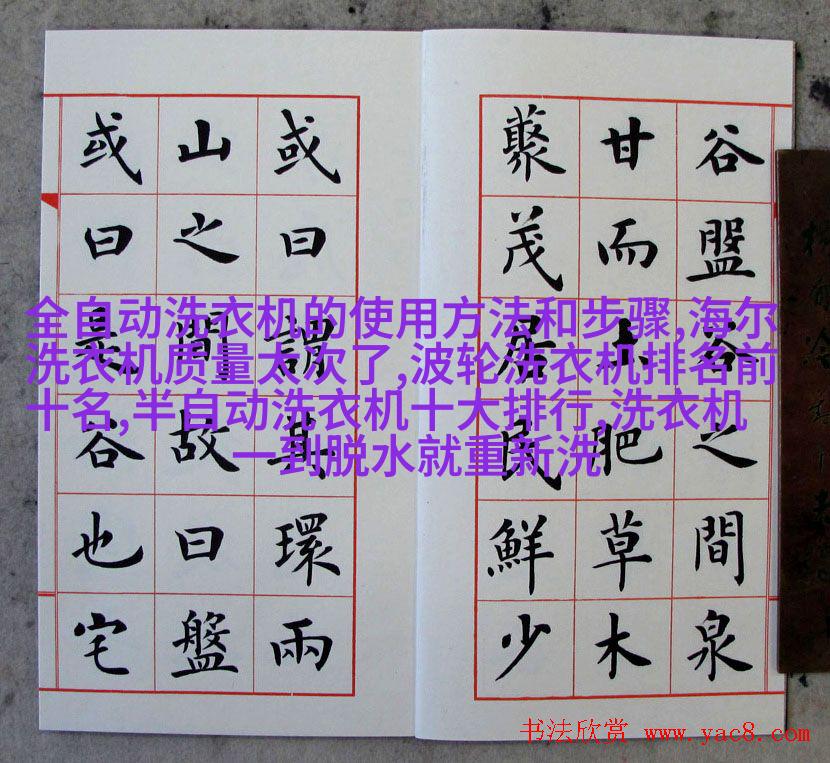 谷盤谷之間泉
甘而土肥草木
藂茂居民鮮少
或曰謂其環兩
山之間故曰盤
或曰是谷也宅
全自动洗衣机的使用方法和步骤,海尔
洗衣机质量太次了,波轮洗衣机排名前
十名,半自动洗衣机十大排行,洗衣机
一到脱水就重新洗
书法欣赏 www.yac8.com